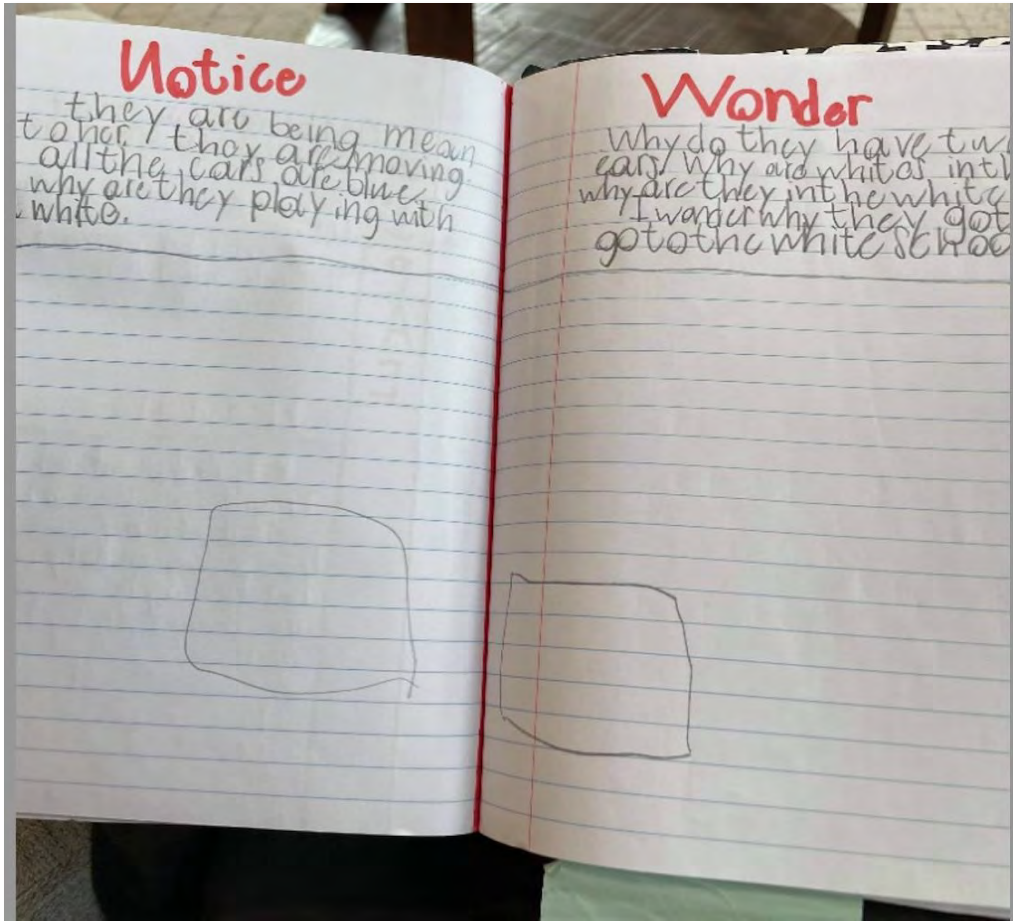 Notice
they are being mean
to her. they are moving.
all the cars are blue.
why are they playing with
white.
Wonder
Why do they have tw
cars/ Why are whites int
why are they in the white
I wander why they got
go to the white schoo